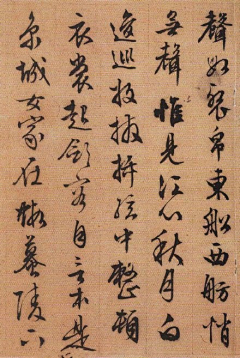 聲如裂帛東船西舫悄
無聲惟見江心秋月白
逡巡撥插絃中整頓
衣裳起斂容自言本是
京城女家住蝦蟆陵下